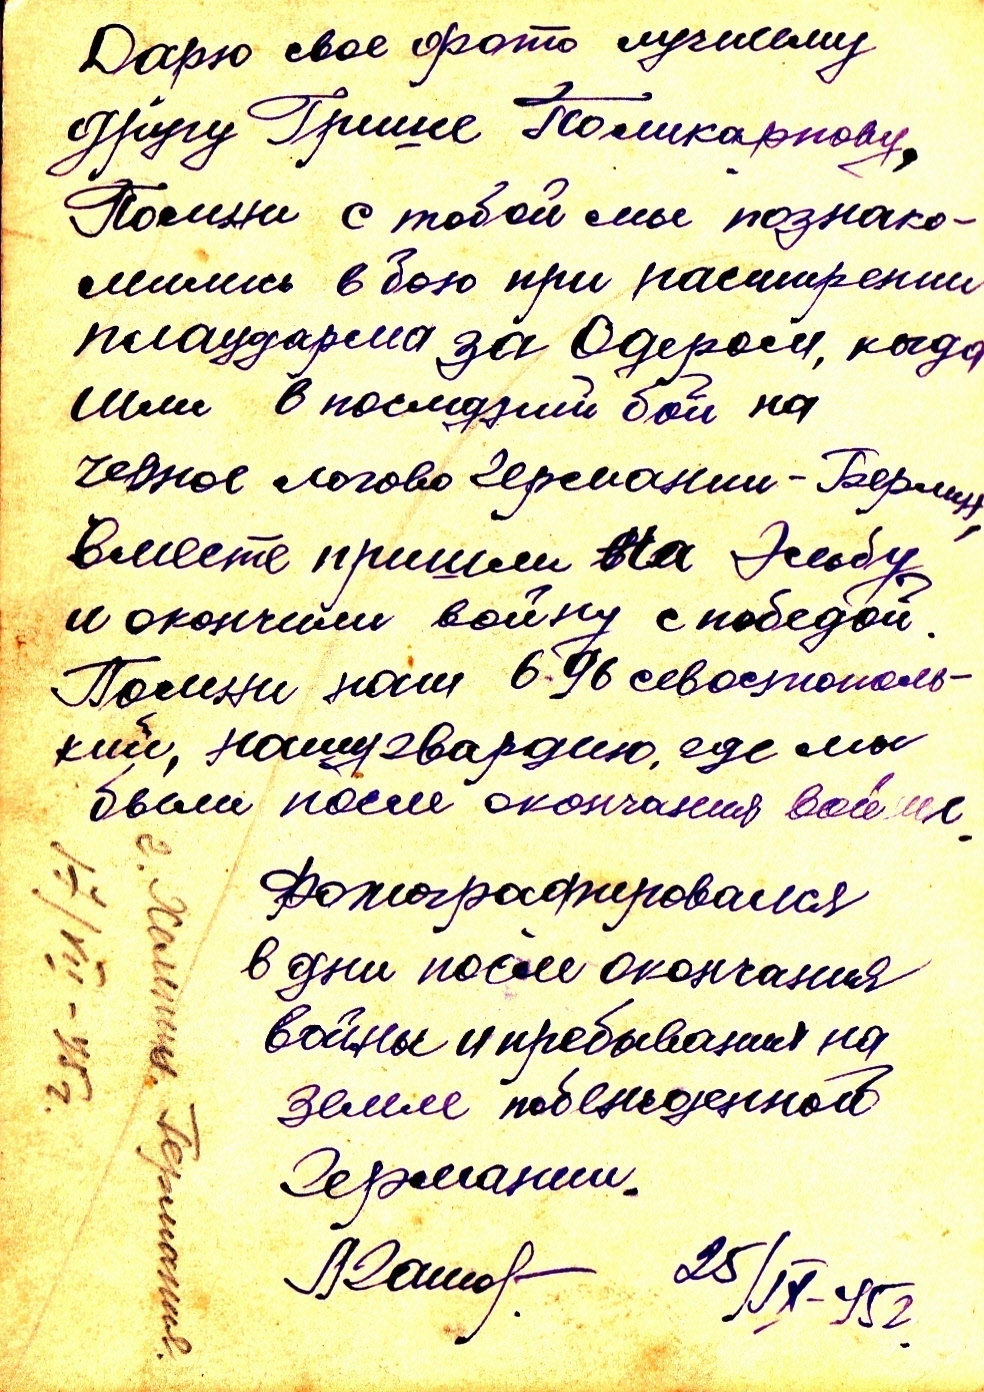 Дарю свое фото лучшему
другу Грише Поликарпову,
Помни с тобой мы познако-
мились в бою при расширении
плацдарма за Одером, когда
шли в последний бой на
черное логово Германии - Берлин,
Вместе пришли на Эльбу
и окончили войну с победой.
Помни наш 696 севастополь-
кий, нашу гвардию, где мы
были после окончания войны.
Фотографировался
в дни после окончания
войны и пребывания на
земле побежденной
Германии.
25/IX-45г.
г. Германия.
/VII-45г.